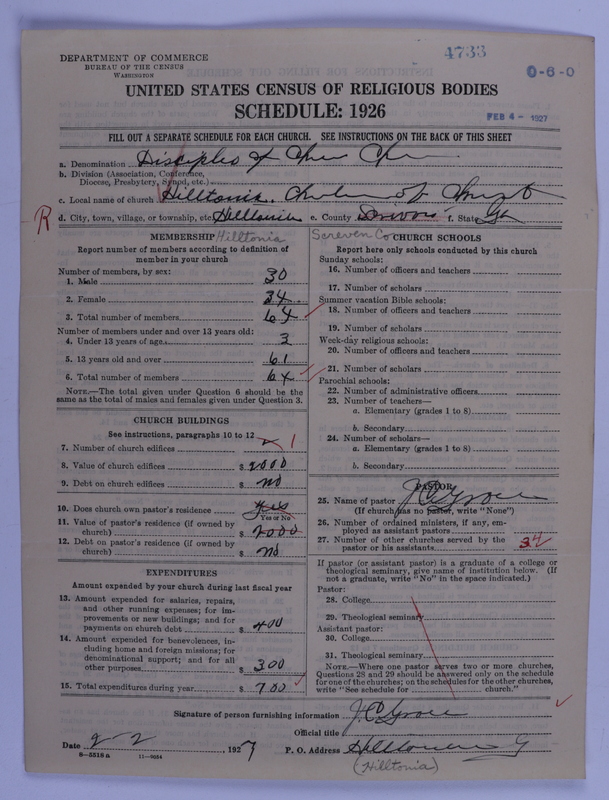 4733
0-6-0
DEPARTMENT OF COMMERCE
BUREAU OF THE CENSUS
WASHINGTON
UNITED STATES CENSUS OF RELIGIOUS BODIES
SCHEDULE: 1926
FEB 4 - 1927
FILL OUT A SEPARATE SCHEDULE FOR EACH CHURCH. SEE INSTRUCTIONS ON THE BACK OF THIS SHEET
a. Denomination Disciples of
b. Division (Association, Conference,
Diocese, Presbytery, Synod, etc.)
c. Local name of church Hilltonia, of Christ
R d. City, town, village, or township, etc. Hilltonia e. County f. State Ga
MEMBERSHIP Hilltonia
Report number of members according to definition of
member in your church
Number of members, by sex:
1. Male 30
2. Female 34
3. Total number of members 64
Number of members under and over 13 years old:
4. Under 13 years of age 3
5. 13 years old and over 61
6. Total number of members 64
NOTE.—The total given under Question 6 should be
same as the total of males and females given under Question 3.
CHURCH BUILDINGS
See instructions, paragraphs 10 to 12
7. Number of church edifices 1
8. Value of church edifices $ 2000
9. Debt on church edifices $ no
10. Does church own pastor's residence yes
Yes or No
11. Value of pastor's residence (if owned by
church) $ 2000
12. Debt on pastor's residence (if owned by
church) $ no
EXPENDITURES
Amount expended by your church during last fiscal year
13. Amount expended for salaries, repairs,
and other running expenses; for im-
provements or new buildings; and for
payments on church debt $ 400
14. Amount expended for benevolences, in-
cluding home and foreign missions; for
denominational support; and for all
other purposes $ 300
15. Total expenditures during year $ 700
Screven Co
CHURCH SCHOOLS
Report here only schools conducted by this church
Sunday schools:
16. Number of officers and teachers
17. Number of scholars
Summer vacation Bible schools:
18. Number of officers and teachers
19. Number of scholars
Week-day religious schools:
20. Number of officers and teachers
21. Number of scholars
Parochial schools:
22. Number of administrative officers
23. Number of teachers—
a. Elementary (grades 1 to 8)
b. Secondary
24. Number of scholars—
a. Elementary (grades 1 to 8)
b. Secondary
PASTOR
25. Name of pastor J C
(If church has no pastor, write "None")
26. Number of ordained ministers, if any, em-
ployed as assistant pastors
27. Number of other churches served by the
pastor or his assistants
If pastor (or assistant pastor) is a graduate of a college or
theological seminary, give name of institution below. (If
not a graduate, write "No" in the space indicated.)
Pastor:
28. College
29. Theological seminary
Assistant pastor:
30. College
31. Theological seminary
NOTE.—Where one pastor serves two or more churches,
Questions 28 and 29 should be answered only on the schedule
for one of the churches; on the schedules for the other churches,
write "See schedule for church."
Signature of person furnishing information J. C.
Official title
Date 2-2 1927 P. O. Address Hilltonia G
8-5518 a 11-9034
(Hilltonia)